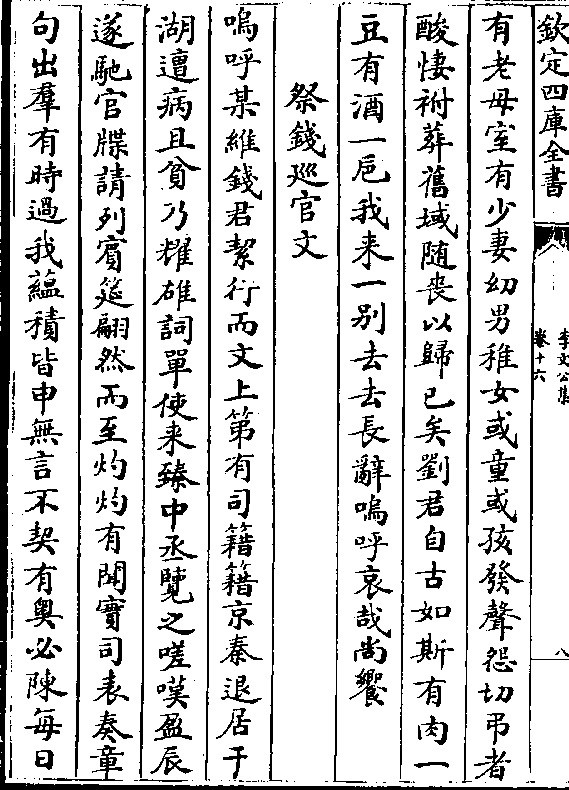 欽定四庫全書
李文公集
卷十六
八
有老母室有少妻幼男稚女或童或孩發聲怨切弔者
酸悽祔葬舊域随喪以歸已矣劉君自古如斯有肉一
豆有酒一巵我来一别去去長辭嗚呼哀哉尚饗
祭錢廵官文
嗚呼某維錢君絜行而文上第有司籍籍京秦退居于
湖遭病且貧乃耀雄詞單使来臻中丞覽之嗟嘆盈辰
遂馳官牒請列賓筵翩然而至灼灼有聞實司表奏章
句出羣有時過我藴積皆申無言不契有奥必陳每日